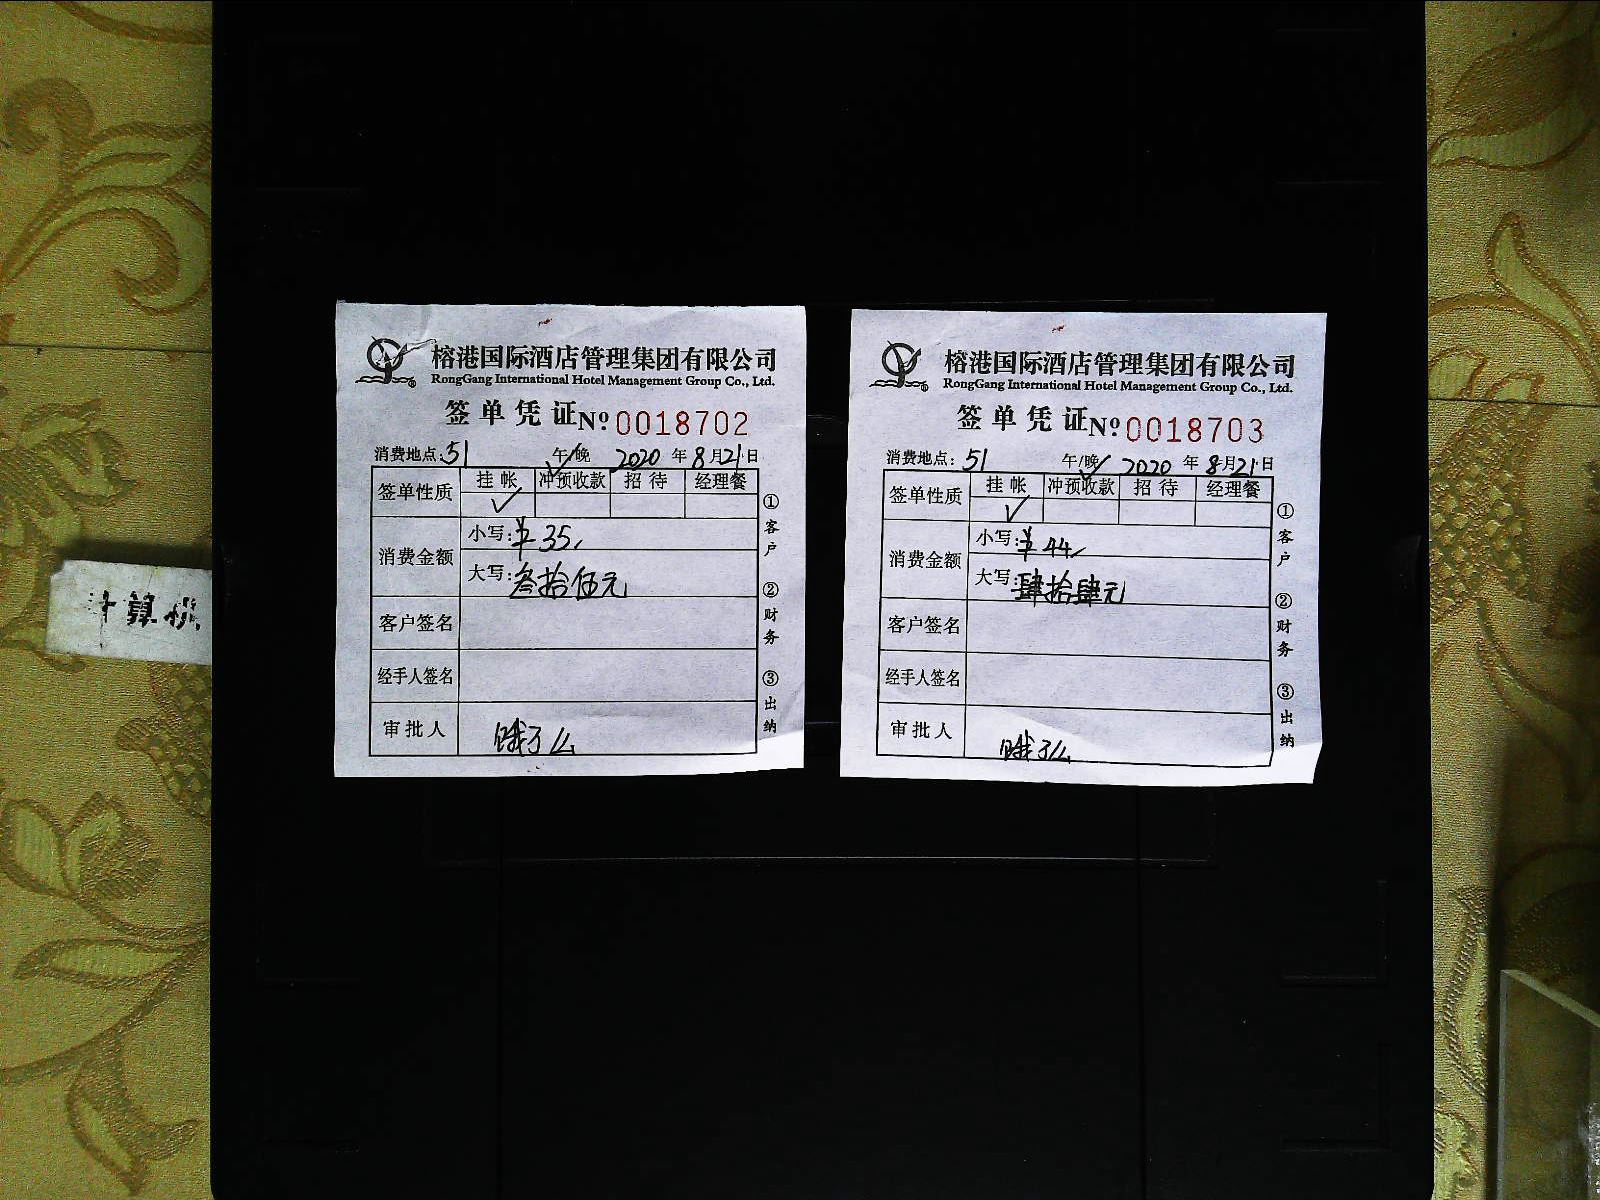 榕港国际酒店管理集团有限公司
RongGang International Hotel Management Group Co., Ltd.
签单凭证 Nº 0018702
消费地点:51 午/晚 2020 年 8 月 21 日
签单性质 挂帐 冲预收款 招待 经理餐
✓
消费金额 小写:¥35
大写:叁拾伍元
客户签名
经手人签名
审批人 饿了么
①客户 ②财务 ③出纳
榕港国际酒店管理集团有限公司
RongGang International Hotel Management Group Co., Ltd.
签单凭证 Nº 0018703
消费地点:51 午/晚 2020 年 8 月 21 日
签单性质 挂帐 冲预收款 招待 经理餐
✓
消费金额 小写:¥44
大写:肆拾肆元
客户签名
经手人签名
审批人 饿了么
①客户 ②财务 ③出纳
计算机